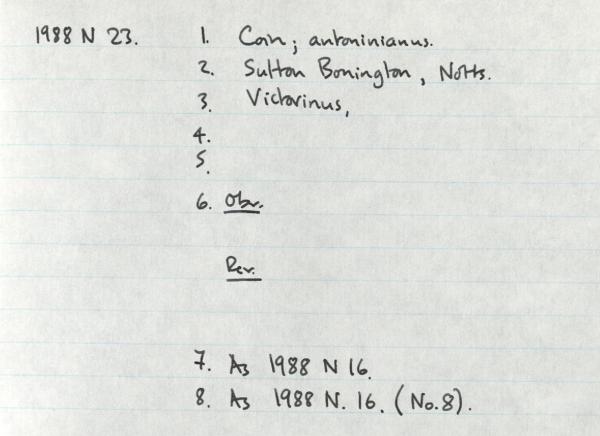 1988 N 23. 1. Coin; antoninianus.
2. Sutton Bonington, Notts.
3. Victorinus,
4.
5.
6. Obv.
Rev.
7. As 1988 N 16.
8. As 1988 N. 16. (No.8).